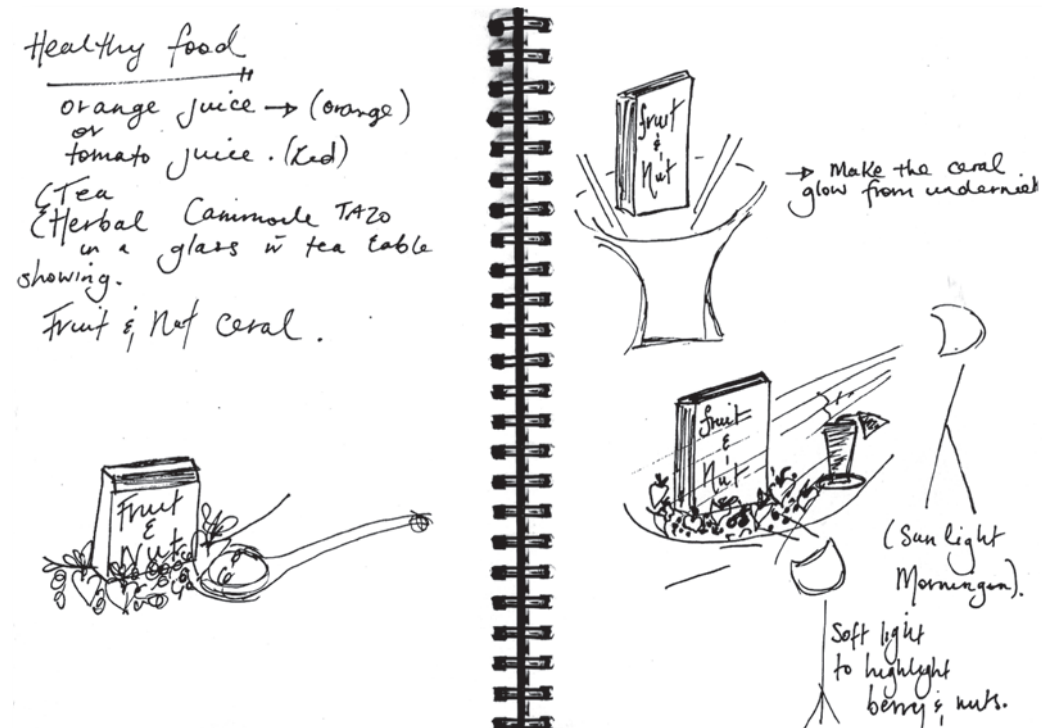 Healthy food
orange juice → (orange)
or
tomato juice. (Red)
(Tea
Herbal TAZO
in a glass tea table
showing.
Fruit & Nut ceral.
Fruit
&
Nut
fruit
&
Nut
→ Make the ceral
glow from
fruit
&
Nut
(Sun light
Soft light
to highlight
berry & nuts.